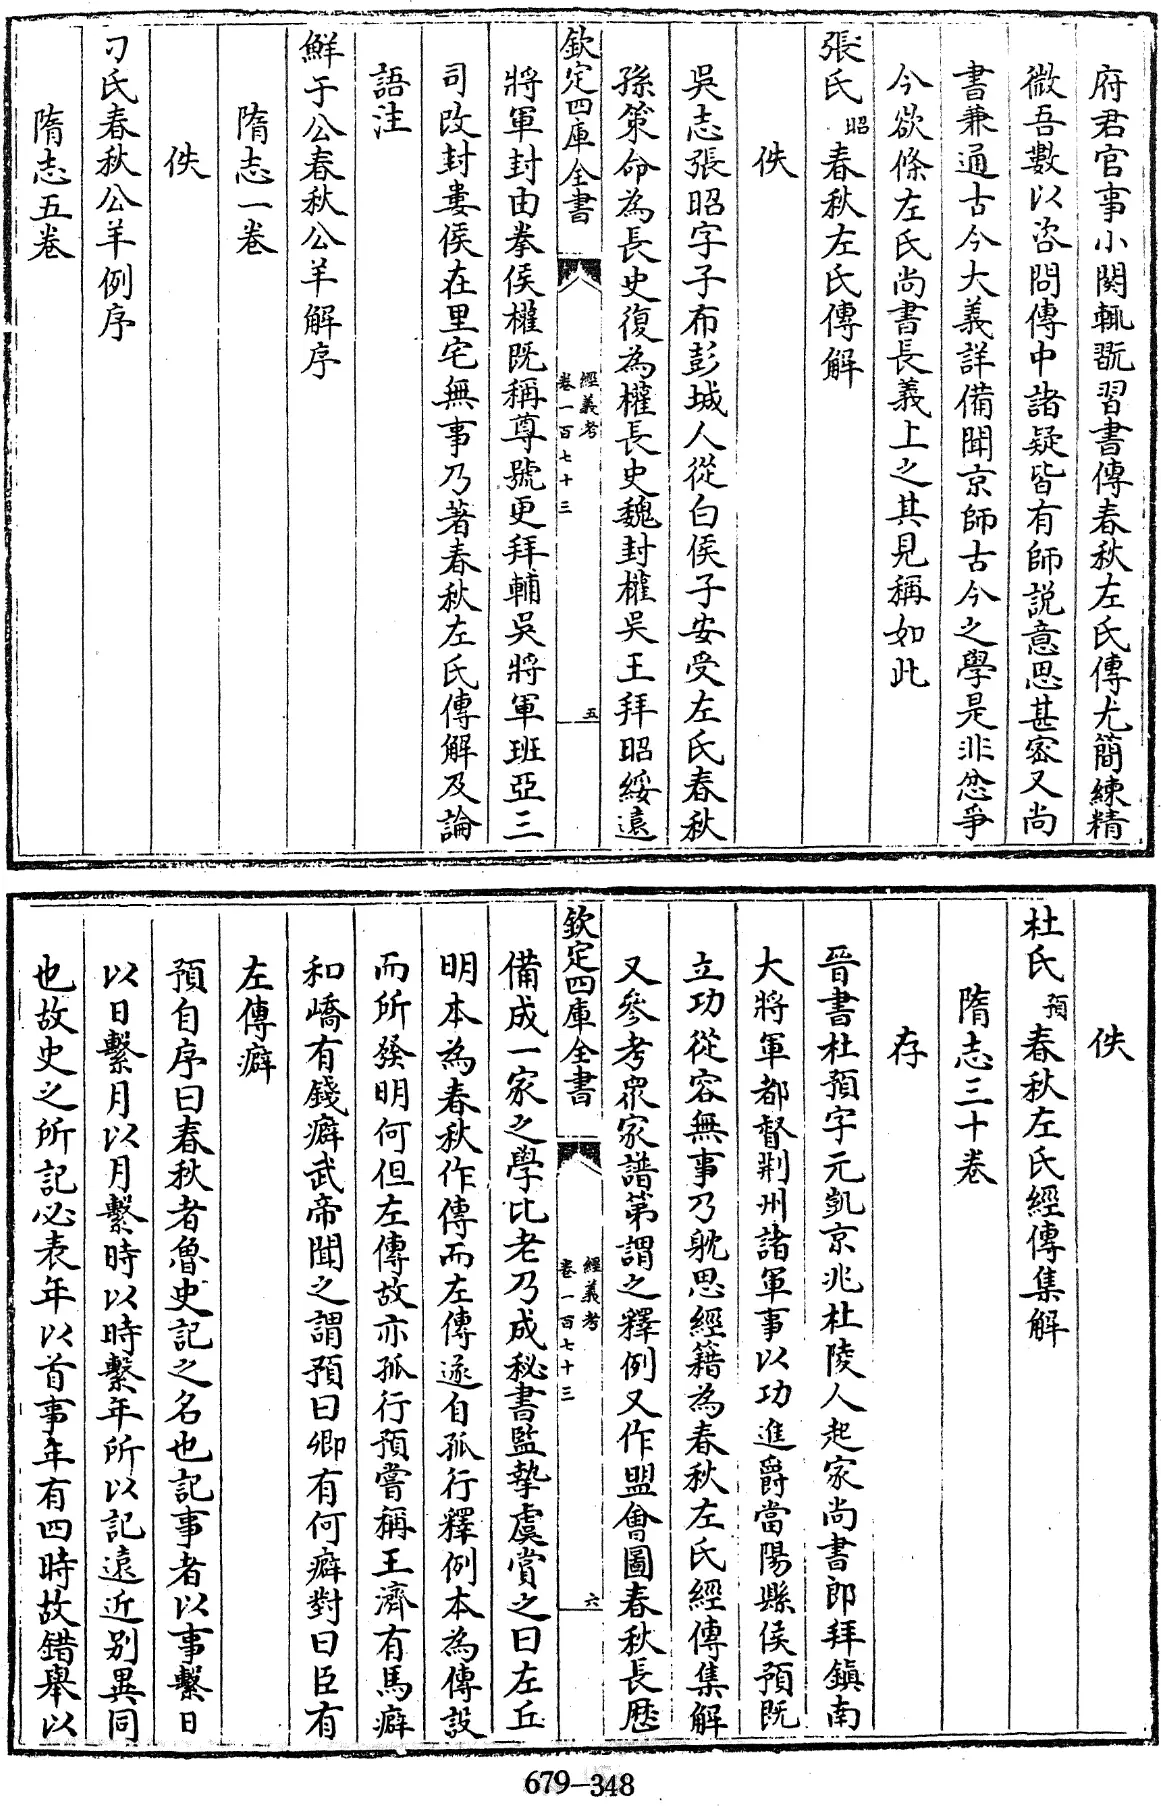 府君官事小閡輒翫習書傳春秋左氏傳尤簡練精
微吾數以咨問傳中諸疑皆有師説意思甚密又尚
書兼通古今大義詳備聞京師古今之學是非忿爭
今欲條左氏尚書長義上之其見稱如此
張氏昭春秋左氏傳解
佚
吳志張昭字子布彭城人從白侯子安受左氏春秋
孫策命為長史復為權長史魏封權吳王拜昭綏遠
欽定四庫全書
經義考
卷一百七十三
五
將軍封由拳侯權既稱尊號更拜輔吳將軍班亞三
司改封婁侯在里宅無事乃著春秋左氏傳解及論
語注
鮮于公春秋公羊解序
隋志一卷
佚
刁氏春秋公羊例序
隋志五卷
佚
杜氏預春秋左氏經傳集解
隋志三十卷
存
晉書杜預字元凱京兆杜陵人起家尚書郎拜鎮南
大將軍都督荆州諸軍事以功進爵當陽縣侯預既
立功從容無事乃躭思經籍為春秋左氏經傳集解
又參考衆家譜第謂之釋例又作盟會圖春秋長厯
欽定四庫全書
經義考
卷一百七十三
六
備成一家之學比老乃成秘書監摯虞賞之曰左丘
明本為春秋作傳而左傳遂自孤行釋例本為傳設
而所發明何但左傳故亦孤行預嘗稱王濟有馬癖
和嶠有錢癖武帝聞之謂預曰卿有何癖對曰臣有
左傳癖
預自序曰春秋者魯史記之名也記事者以事繫日
以日繫月以月繫時以時繫年所以記遠近别異同
也故史之所記必表年以首事年有四時故錯舉以
679-348